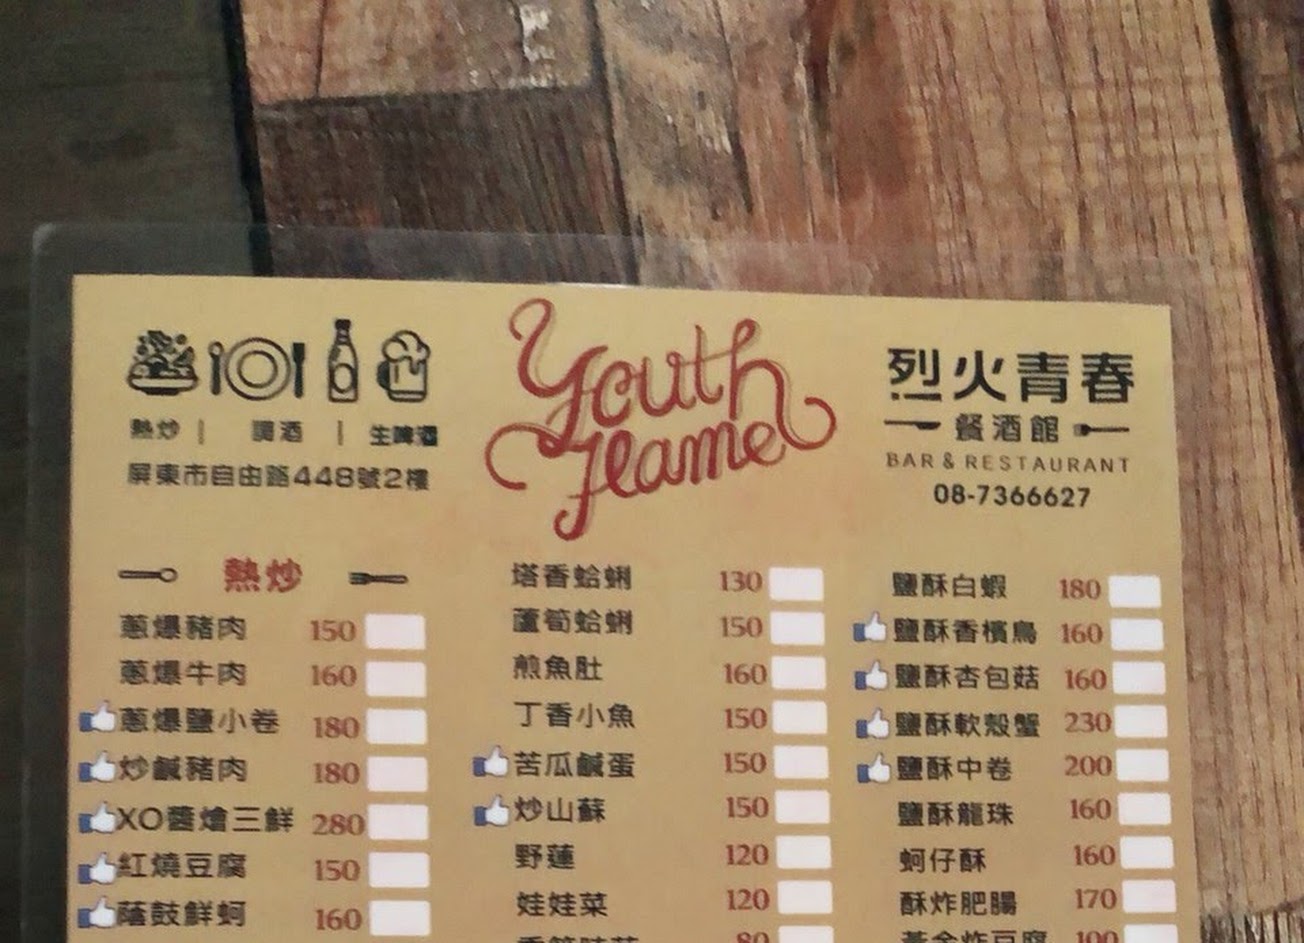 熱炒 | 調酒 | 生啤酒
屏東市自由路448號2樓
Youth
Flame
烈火青春
餐酒館
BAR & RESTAURANT
08-7366627
熱炒
蔥爆豬肉 150
蔥爆牛肉 160
蔥爆鹽小卷 180
炒鹹豬肉 180
XO醬燴三鮮 280
紅燒豆腐 150
蔭鼓鮮蚵 160
塔香蛤蜊 130
蘆筍蛤蜊 150
煎魚肚 160
丁香小魚 150
苦瓜鹹蛋 150
炒山蘇 150
野蓮 120
娃娃菜 120
80
鹽酥白蝦 180
鹽酥香檳鳥 160
鹽酥杏包菇 160
鹽酥軟殼蟹 230
鹽酥中卷 200
鹽酥龍珠 160
蚵仔酥 160
酥炸肥腸 170
黃金炸豆腐 100